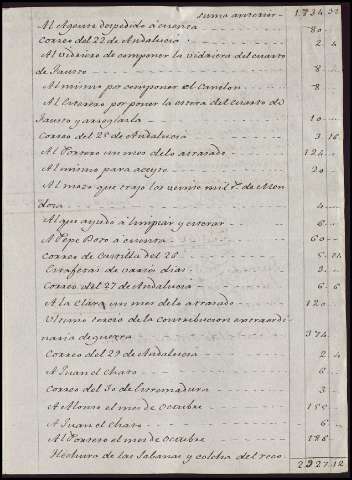 suma anterior 1.734. 31
Al Agustn despedido á cuenta 80
Correo del 22 de Andalucia 2. 4
Al vidriero de componer la vidriera del cuarto
de Fausto 8
Al mismo por componer el Canelon 8
Al Esterero por poner la estera del cuarto de
Fausto y arreglarla 10
Correo del 25 de Andalucia 3. 16
Al Portero un mes de lo atrasado 124
Al mismo para aceyte 20
Al mozo que trajo los veinte mil r.^s de Men
doza 4
Al que ayudó á limpiar y esterar 6
A Pepe Boto á cuenta 60
Correo de Castilla del 26 5.
Estafetas de varios dias 3
Correo del 27 de Andalucia 6. 6
A la Clara un mes de lo atrasado 120
Ultimo tercio de la contribucion extraordi
naria de guerra 374
Correo del 29 de Andalucia 2. 4
A Juan el Chato 6
Correo del 30 de Extremadura 3
A Alonso el mes de Octubre 150
A Juan el Chato 6
Al Portero el mes de Octubre 186
Hechura de las Sabanas y colcha del
2927. 12